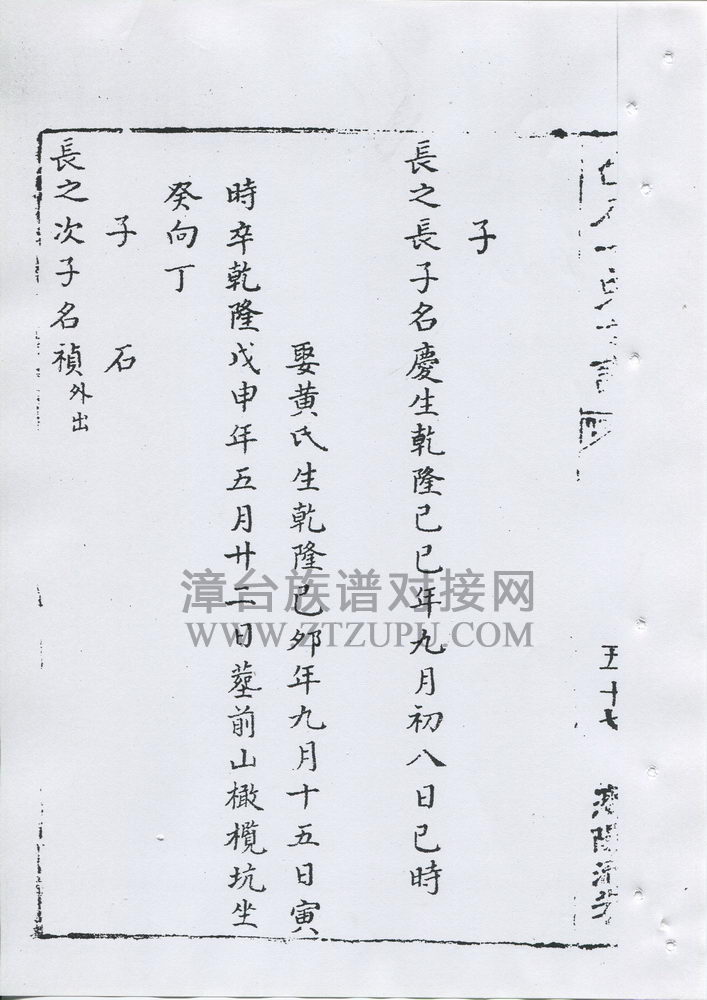 五十七
子
長之長子名慶生乾隆己巳年九月初八日巳時
娶黄氏生乾隆己夘年九月十五日寅
時卒乾隆戊申年五月廿二日塟前山橄欖坑坐
癸向丁
子 石
長之次子名禎外出
漳台族谱对接网
WWW.ZTZUPU.COM